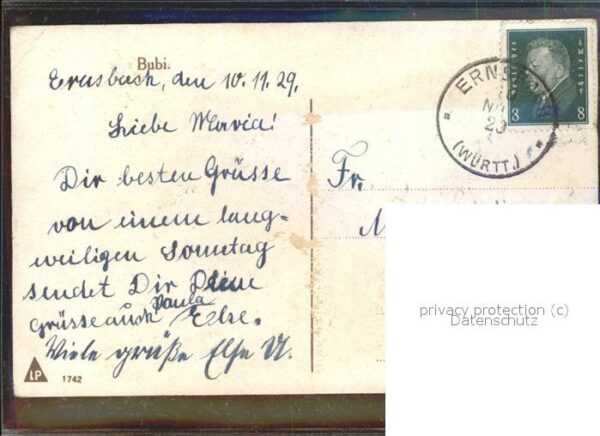 Bubi.
Ernsbach, den 10.11.29.
Liebe Maria!
Dir besten Grüsse
von einem lang-
weiligen Sonntag
sendet Dir Deine
Paula
Grüsse auch Else.
Viele grüße Else U.
LP
1742
Fr.
ERNSBACH
NOV
29
(WÜRTT.)
DEUTSCHES REICH
8 8
privacy protection (c)
Datenschutz